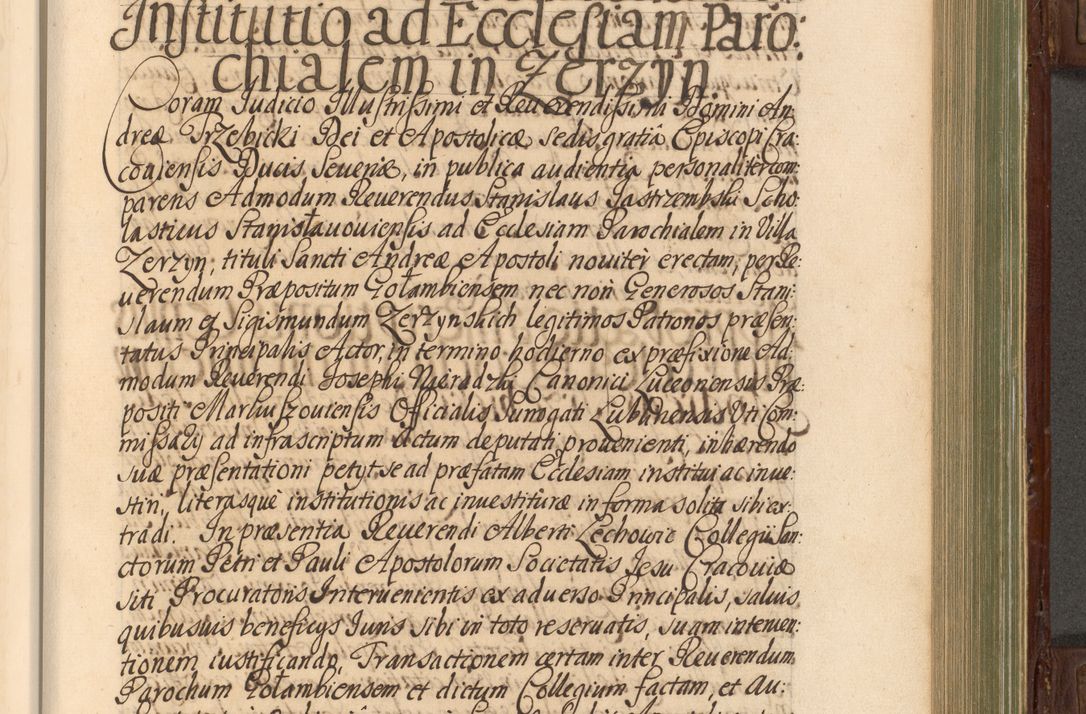 Institutio ad Ecclesiam Paro:
chialem in Zerzyn.
Coram Iudicio Illustrissimi et Reuerendissimi Domini An
dreæ Trzebicki Dei et Apostolicæ sedis gratia Episcopi Cra:
couiensis Ducis Seueriæ, in publica audientia personaliter com:
parens Admodum Reuerendus Stanislaus Jastrzembski Scho
lasticus Stanisłauouiensis ad Ecclesiam Parochialem in Villa
Zerzyn, tituli Sancti Andreæ Apostoli nouiter erectam, per Re:
uerendum Præpositum Gołambiensem nec non Generosos Stani:
slaum et Sigismundum Zerzynskich legitimos Patronos præsen:
tatus Principalis Actor, in termino hodierno ex præfixione Ad:
modum Reuerendi Josephi Nieradzki Canonici Luceoriensis Præ:
positi Markuszouiensis Officialis Surrogati Lublinensis Uti Com:
missarÿ ad infrascriptum Actum deputati prouenienti, inhærendo
suæ præsentationi petyt se ad præfatam Ecclesiam institui ac inue:
stiri, literasque institutionis ac inuestituræ in forma solita sibi ex:
tradi. In præsentia Reuerendi Alberti Lechowic Collegii San:
ctorum Petri et Pauli Apostolorum Societatis Jesu Cracouiæ
siti Procuratoris Interuenientis ex aduerso Principalis, saluis
quibusuis beneficÿs Iuris sibi in toto reseruatis, suam interuen:
tionem iustificando, Transactionem certam inter Reuerendum
Parochum Gołambiensem et dictum Collegium factam, et Au: